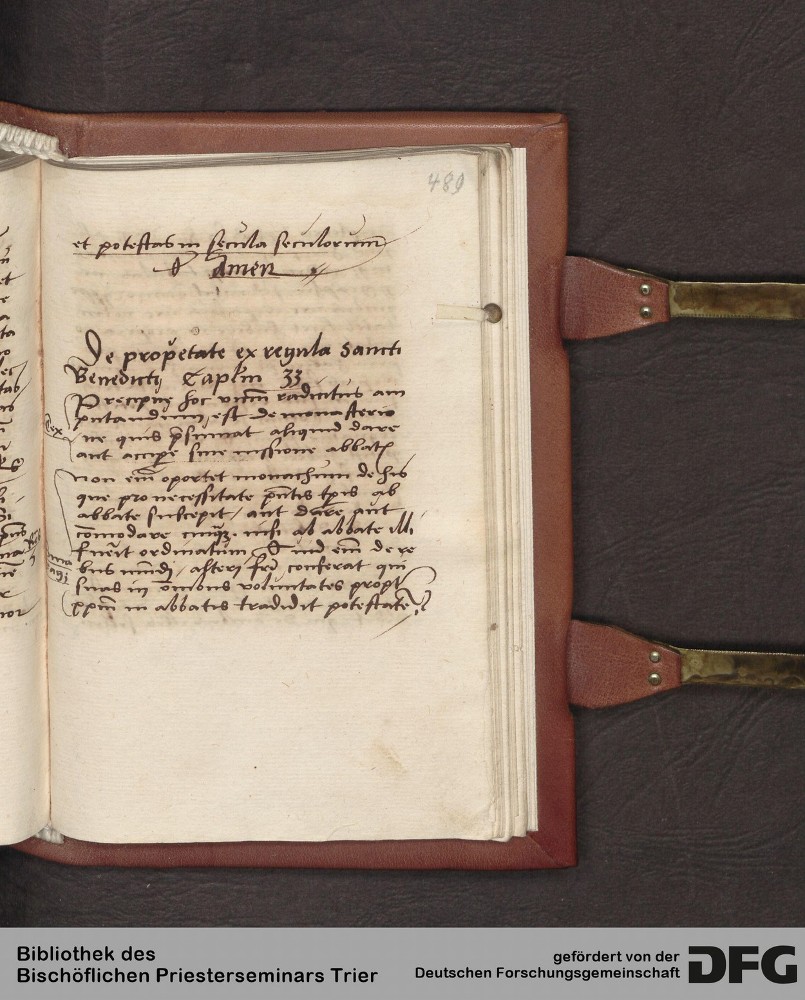 489
et potestas in secula seculorum
Amen
De propetate ex regula Sancti
Benedicti Caplm 33
Precipue hoc vitiu radicitus am
putandum est de monasterio
ne quis psumat aliquid dare
aut accipe sine iussione abbatis
non em oportet monachum de his
que pro necessitate pntis tpis ab
abbate suscepit, aut dare aut
comodare cuiq, nisi ab abbate illi
fuerit ordinatum, em de re
bus mundi, alteri fri conferat qui
suas in omibus voluntates propt
xpm in abbatis tradidit potestate
Bibliothek des
Bischöflichen Priesterseminars Trier
gefördert von der
Deutschen Forschungsgemeinschaft
DFG